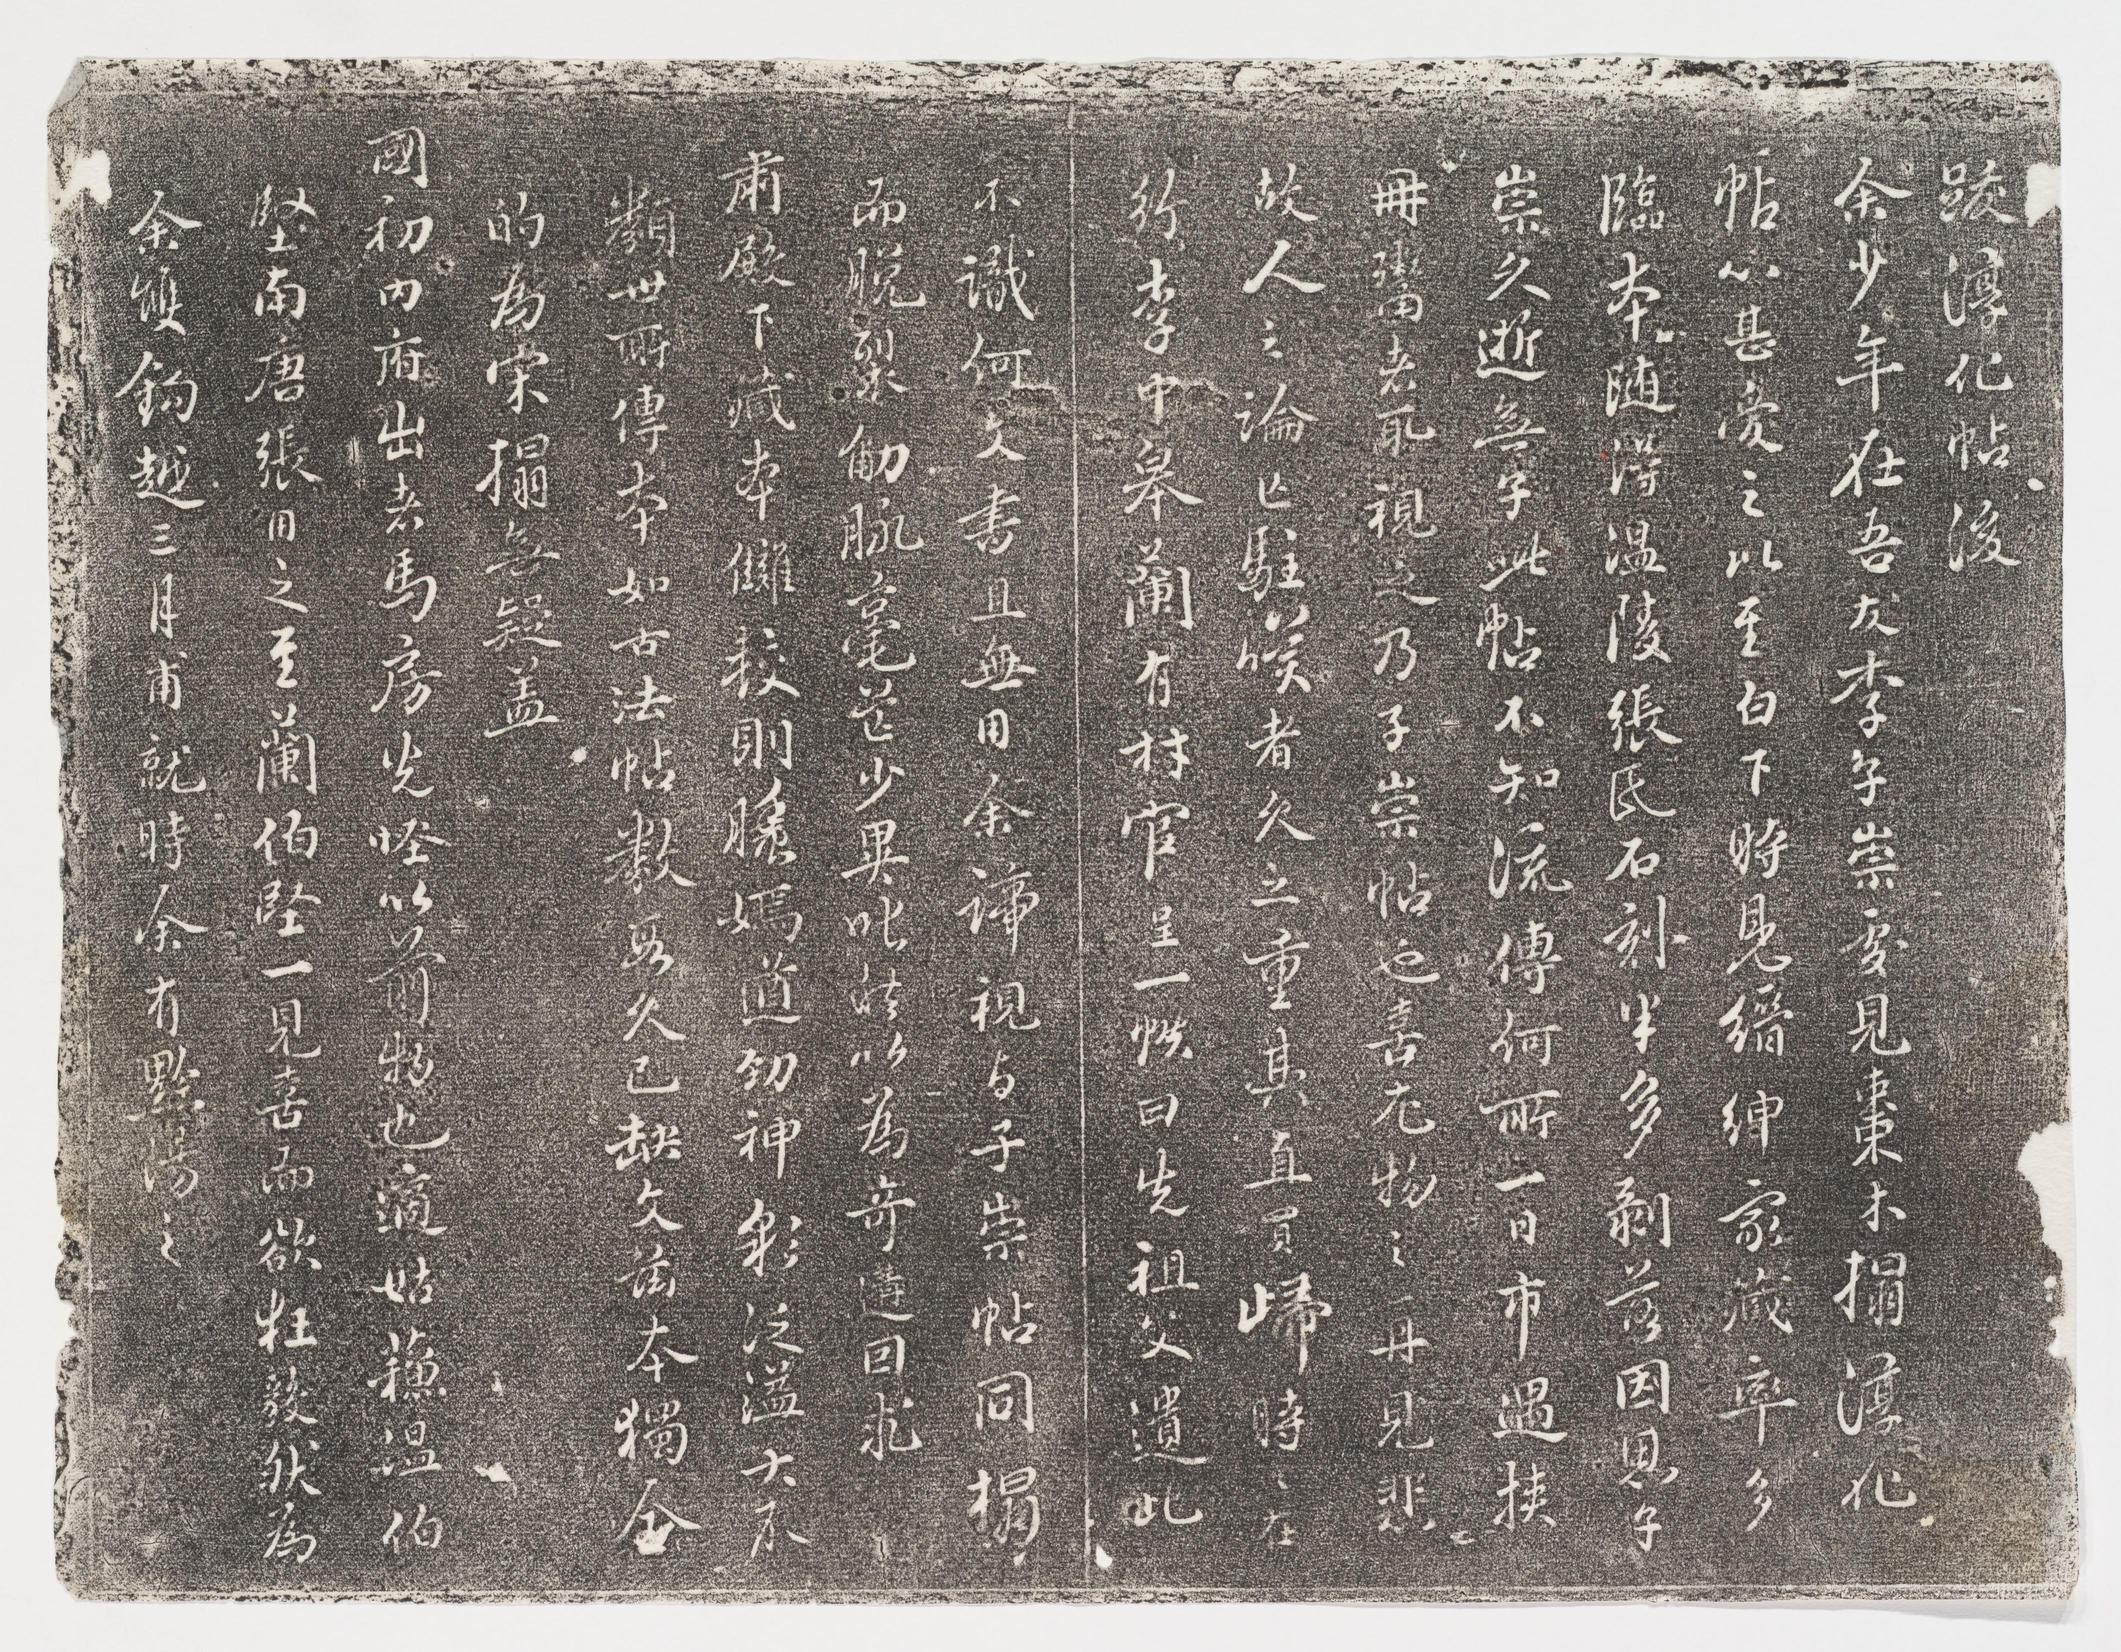 跋淳化帖後
余少年在吾友李子崇處見棗木搨淳化
帖心甚愛之以至白下時見縉紳家藏率多
臨本隨得溫陵張氏石刻半多剝落因思子
崇久逝無子此帖不知流傳何所一日市遇挾
冊鬻者取視之乃子崇帖也喜尤物之一再見悲
故人之論亡駐嘆者久之重其直買歸時之在
行李中皋蘭有材官呈一帙曰先祖父遺此
不識何文書且無用余諦視与子崇帖同搨
而脫裂勔脉毫芒少異咤絕以為奇遘回求
肅殿下藏本讎較則膽嫣遒勁神彩泛溢大不
類世所傳本如古法帖數段久已缺文茲本獨全
的為宋搨無疑蓋
國初內府出者馬房光怪以前物也適姑蘇溫伯
堅南唐張用之至蘭伯堅一見喜而欲狂發狀為
余雙鉤越三月甫就時余有黔陽之